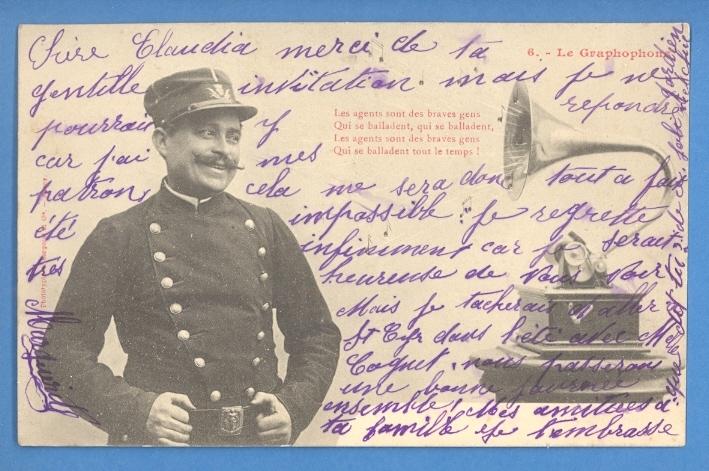 6. - Le Graphophone
Les agents sont des braves gens
Qui se balladent, qui se balladent,
Les agents sont des braves gens
Qui se balladent tout le temps !
Claudia merci de ta
gentille invitation mais je ne
pourrais y repondre
car j'ai mes
patrons, cela me sera donc tout a fait
impossible je regrette
infiniment car je serais
très heureuse de vous voir
Mais je tacherais d'aller
St Cyr dans l'été avec Me
Coquet. nous passerons
une bonne journée
ensemble! Mes amitiées a
ta famille je t'embrasse